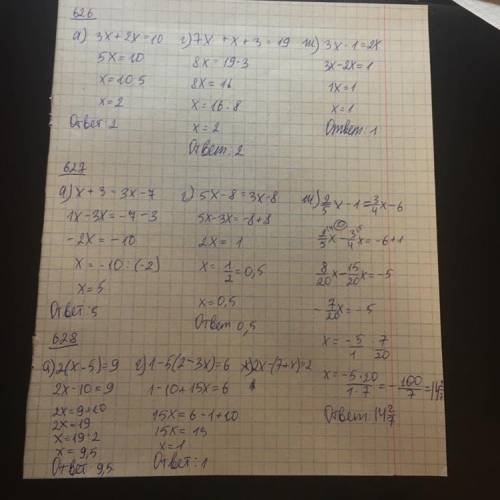 626
а) 3x+2x=10
5x=10
x=10:5
x=2
Ответ: 2
г) 7x+x+3=19
8x=19-3
8x=16
x=16:8
x=2
Ответ: 2
ж) 3x-1=2x
3x-2x=1
1x=1
x=1
Ответ: 1
627
а) x+3=3x-7
1x-3x=-7-3
-2x=-10
x=-10:(-2)
x=5
Ответ: 5
г) 5x-8=3x-8
5x-3x=-8+8
2x=1
x=1/2=0,5
x=0,5
Ответ 0,5
ж) 2/5x-1=3/4x-6
x-3/4x=-6+1
8/20x-15/20x=-5
-7/20x=-5
x=-5/1:7/20
x=-5·20/1·7=-100/7=14 2/7
Ответ 14 2/7
628
а) 2(x-5)=9
2x-10=9
2x=9+10
2x=19
x=19:2
x=9,5
Ответ 9,5
г) 1-5(2-3x)=6
1-10+15x=6
15x=6-1+10
15x=15
x=1
Ответ: 1
ж) 2x-(7+x)=2